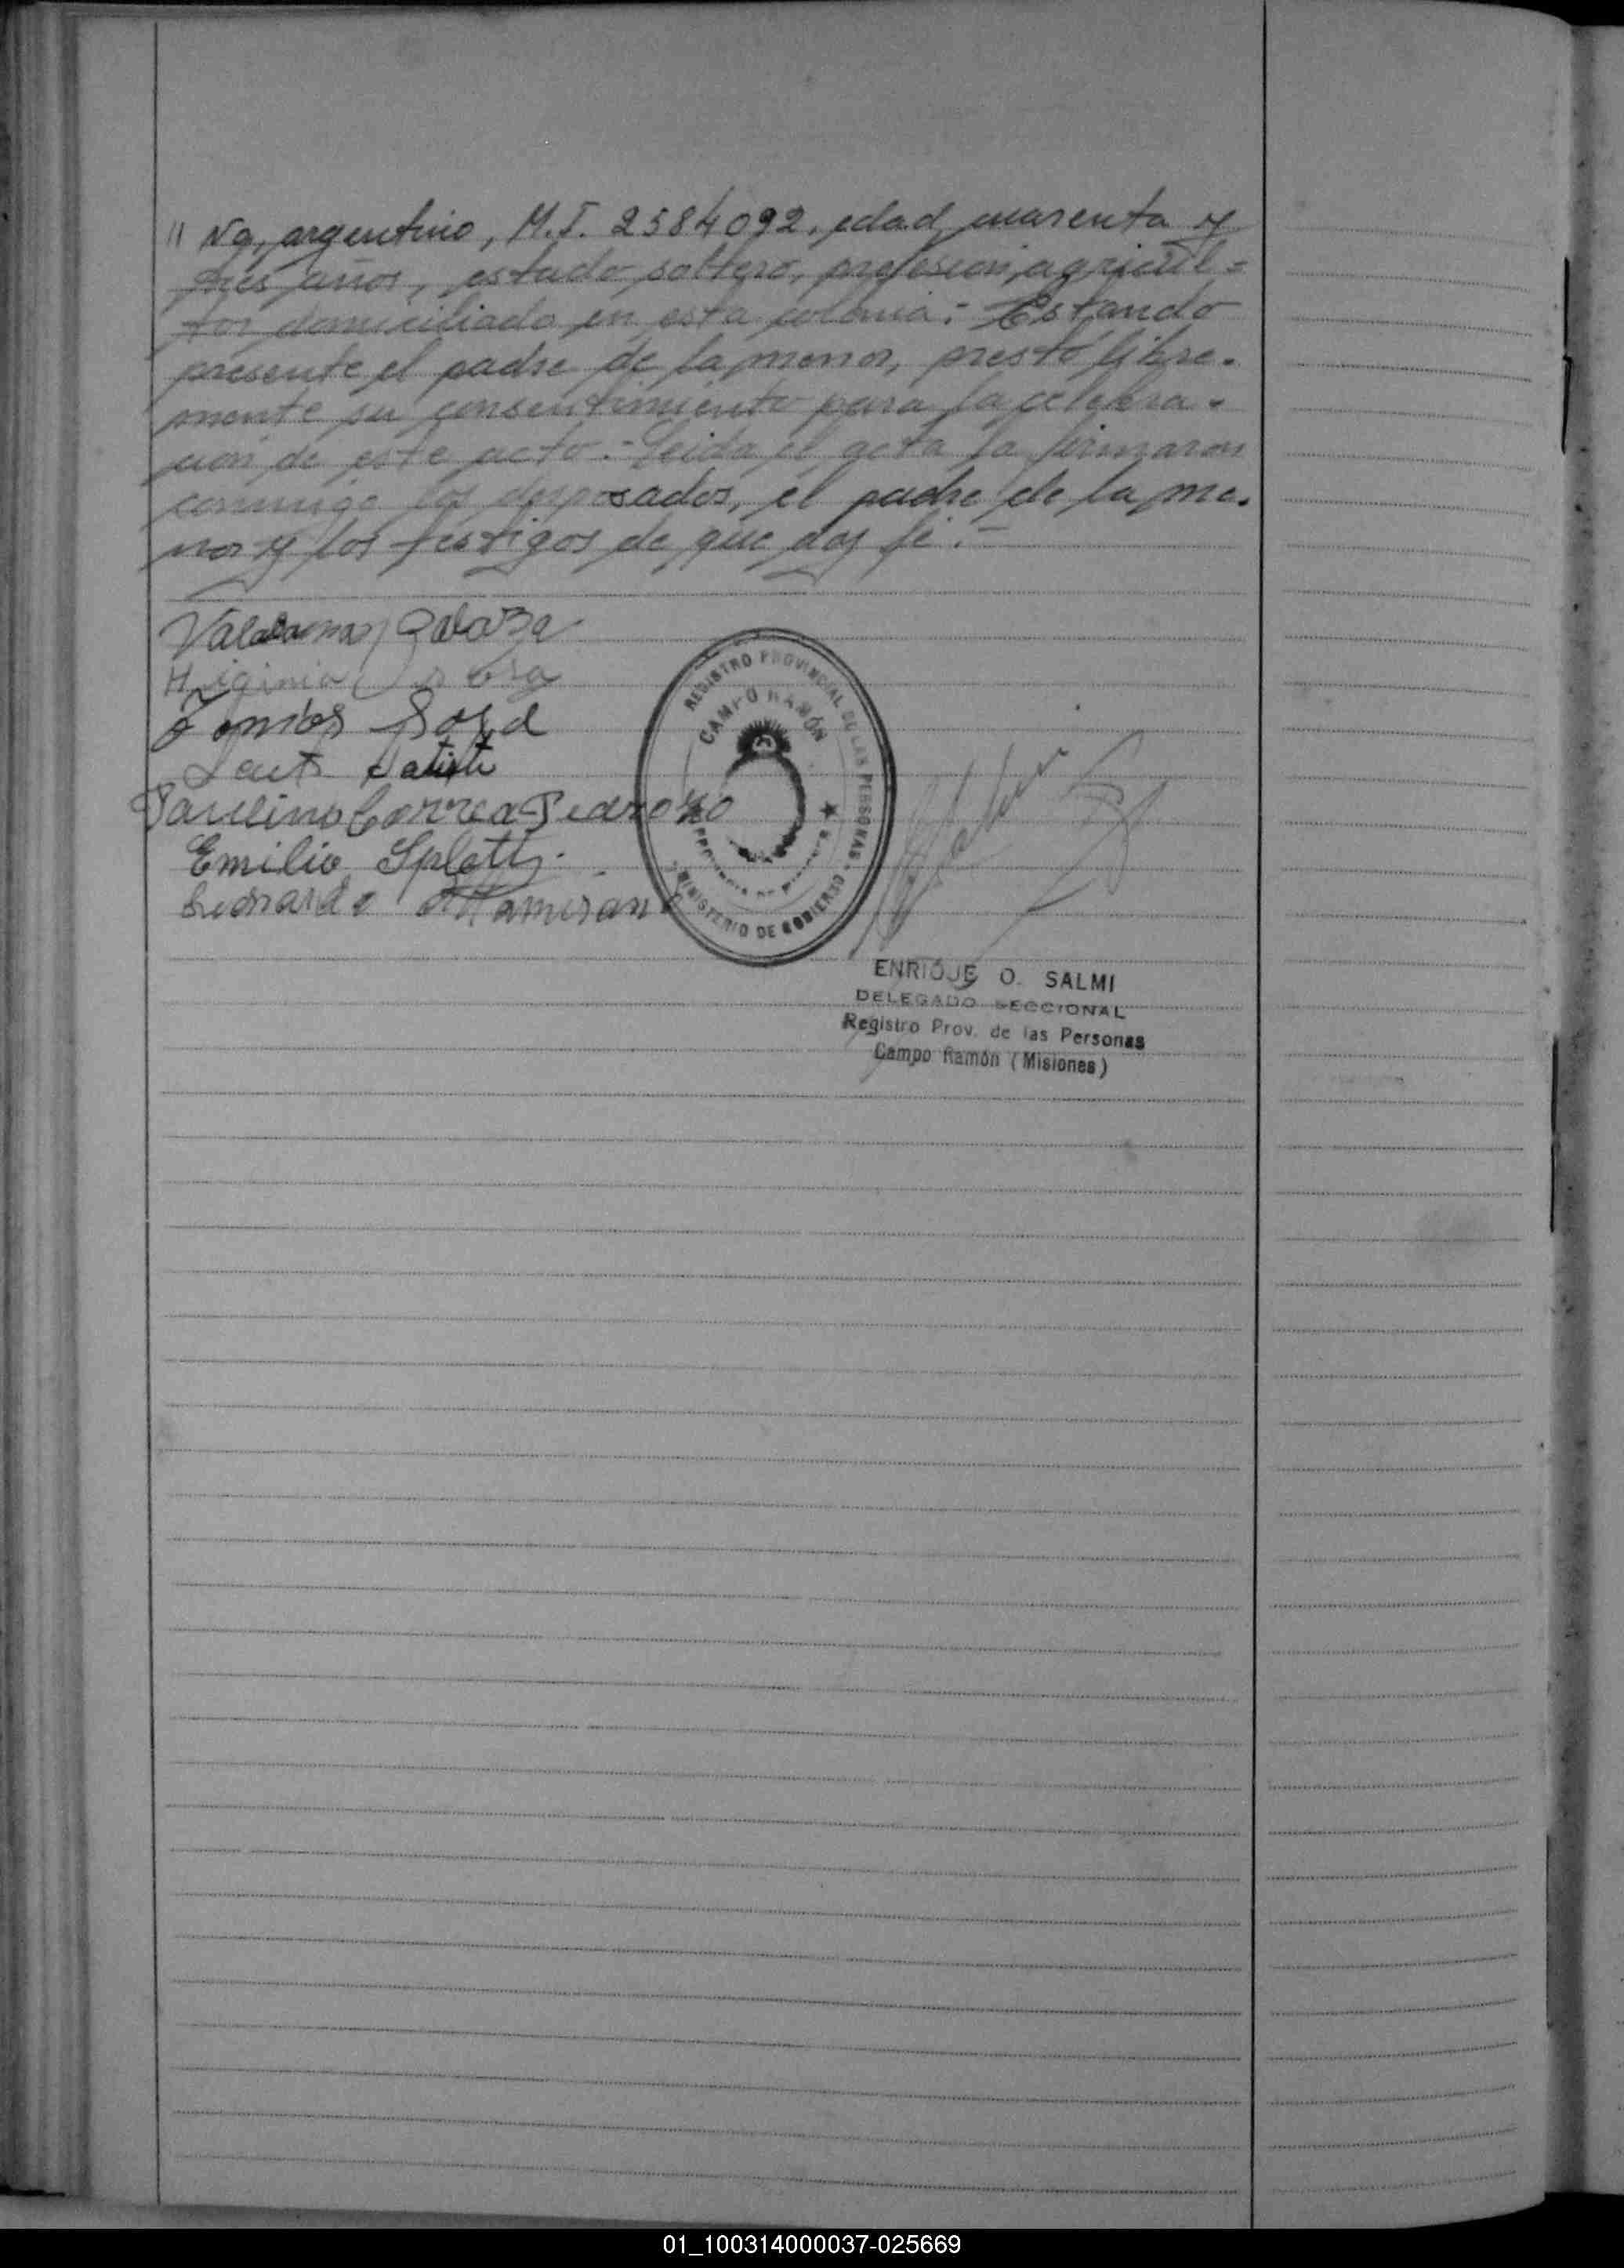 " na, argentino, M.I. 2584092, edad cuarenta y
tres años, estado soltero, profesion agricul=
tor domiciliado en esta colonia.- Estando
presente el padre de la menor, prestó libre-
mente su consentimiento para la celebra-
cion de este acto.- Leida el acta la firmaron
conmigo los desposados, el padre de la me-
nor y los testigos de que doy fé.-
Paulino Correa Pedrozo
Emilio Splett
Leonardo Altamirano
REGISTRO PROVINCIAL DE LAS PERSONAS
CAMPO RAMÓN
MINISTERIO DE GOBIERNO
ENRIQUE O. SALMI
DELEGADO SECCIONAL
Registro Prov. de las Personas
Campo Ramón (Misiones)
01_100314000037-025669